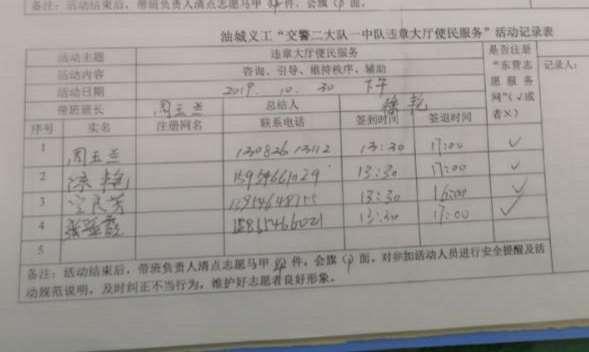 备注：活动结束后，带班负责人清点志愿马甲 件，会旗 面。
油城义工“交警二大队一中队违章大厅便民服务”活动记录表
活动主题 违章大厅便民服务 是否注册“东营志愿服务网”（√或者×） 记录人：
活动内容 咨询、引导、维持秩序、辅助
活动日期 2019. 10. 30 下午
带班班长 周玉兰 总结人 徐艳
序号 实名 注册网名 联系电话 签到时间 签退时间
1 周玉兰 13:30 17:00 √
2 徐艳 13:30 17:00 √
3 13:30 16:00 √
4 13:30 17:00 √
5
备注：活动结束后，带班负责人清点志愿马甲 件，会旗 面，对参加活动人员进行安全提醒及活
动规范说明，及时纠正不当行为，维护好志愿者良好形象。